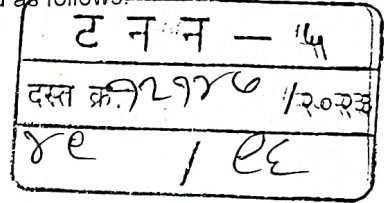 as follows:
ट न न — ५
दस्त क्र. १२१४७ /२०२३
४९ / ९६